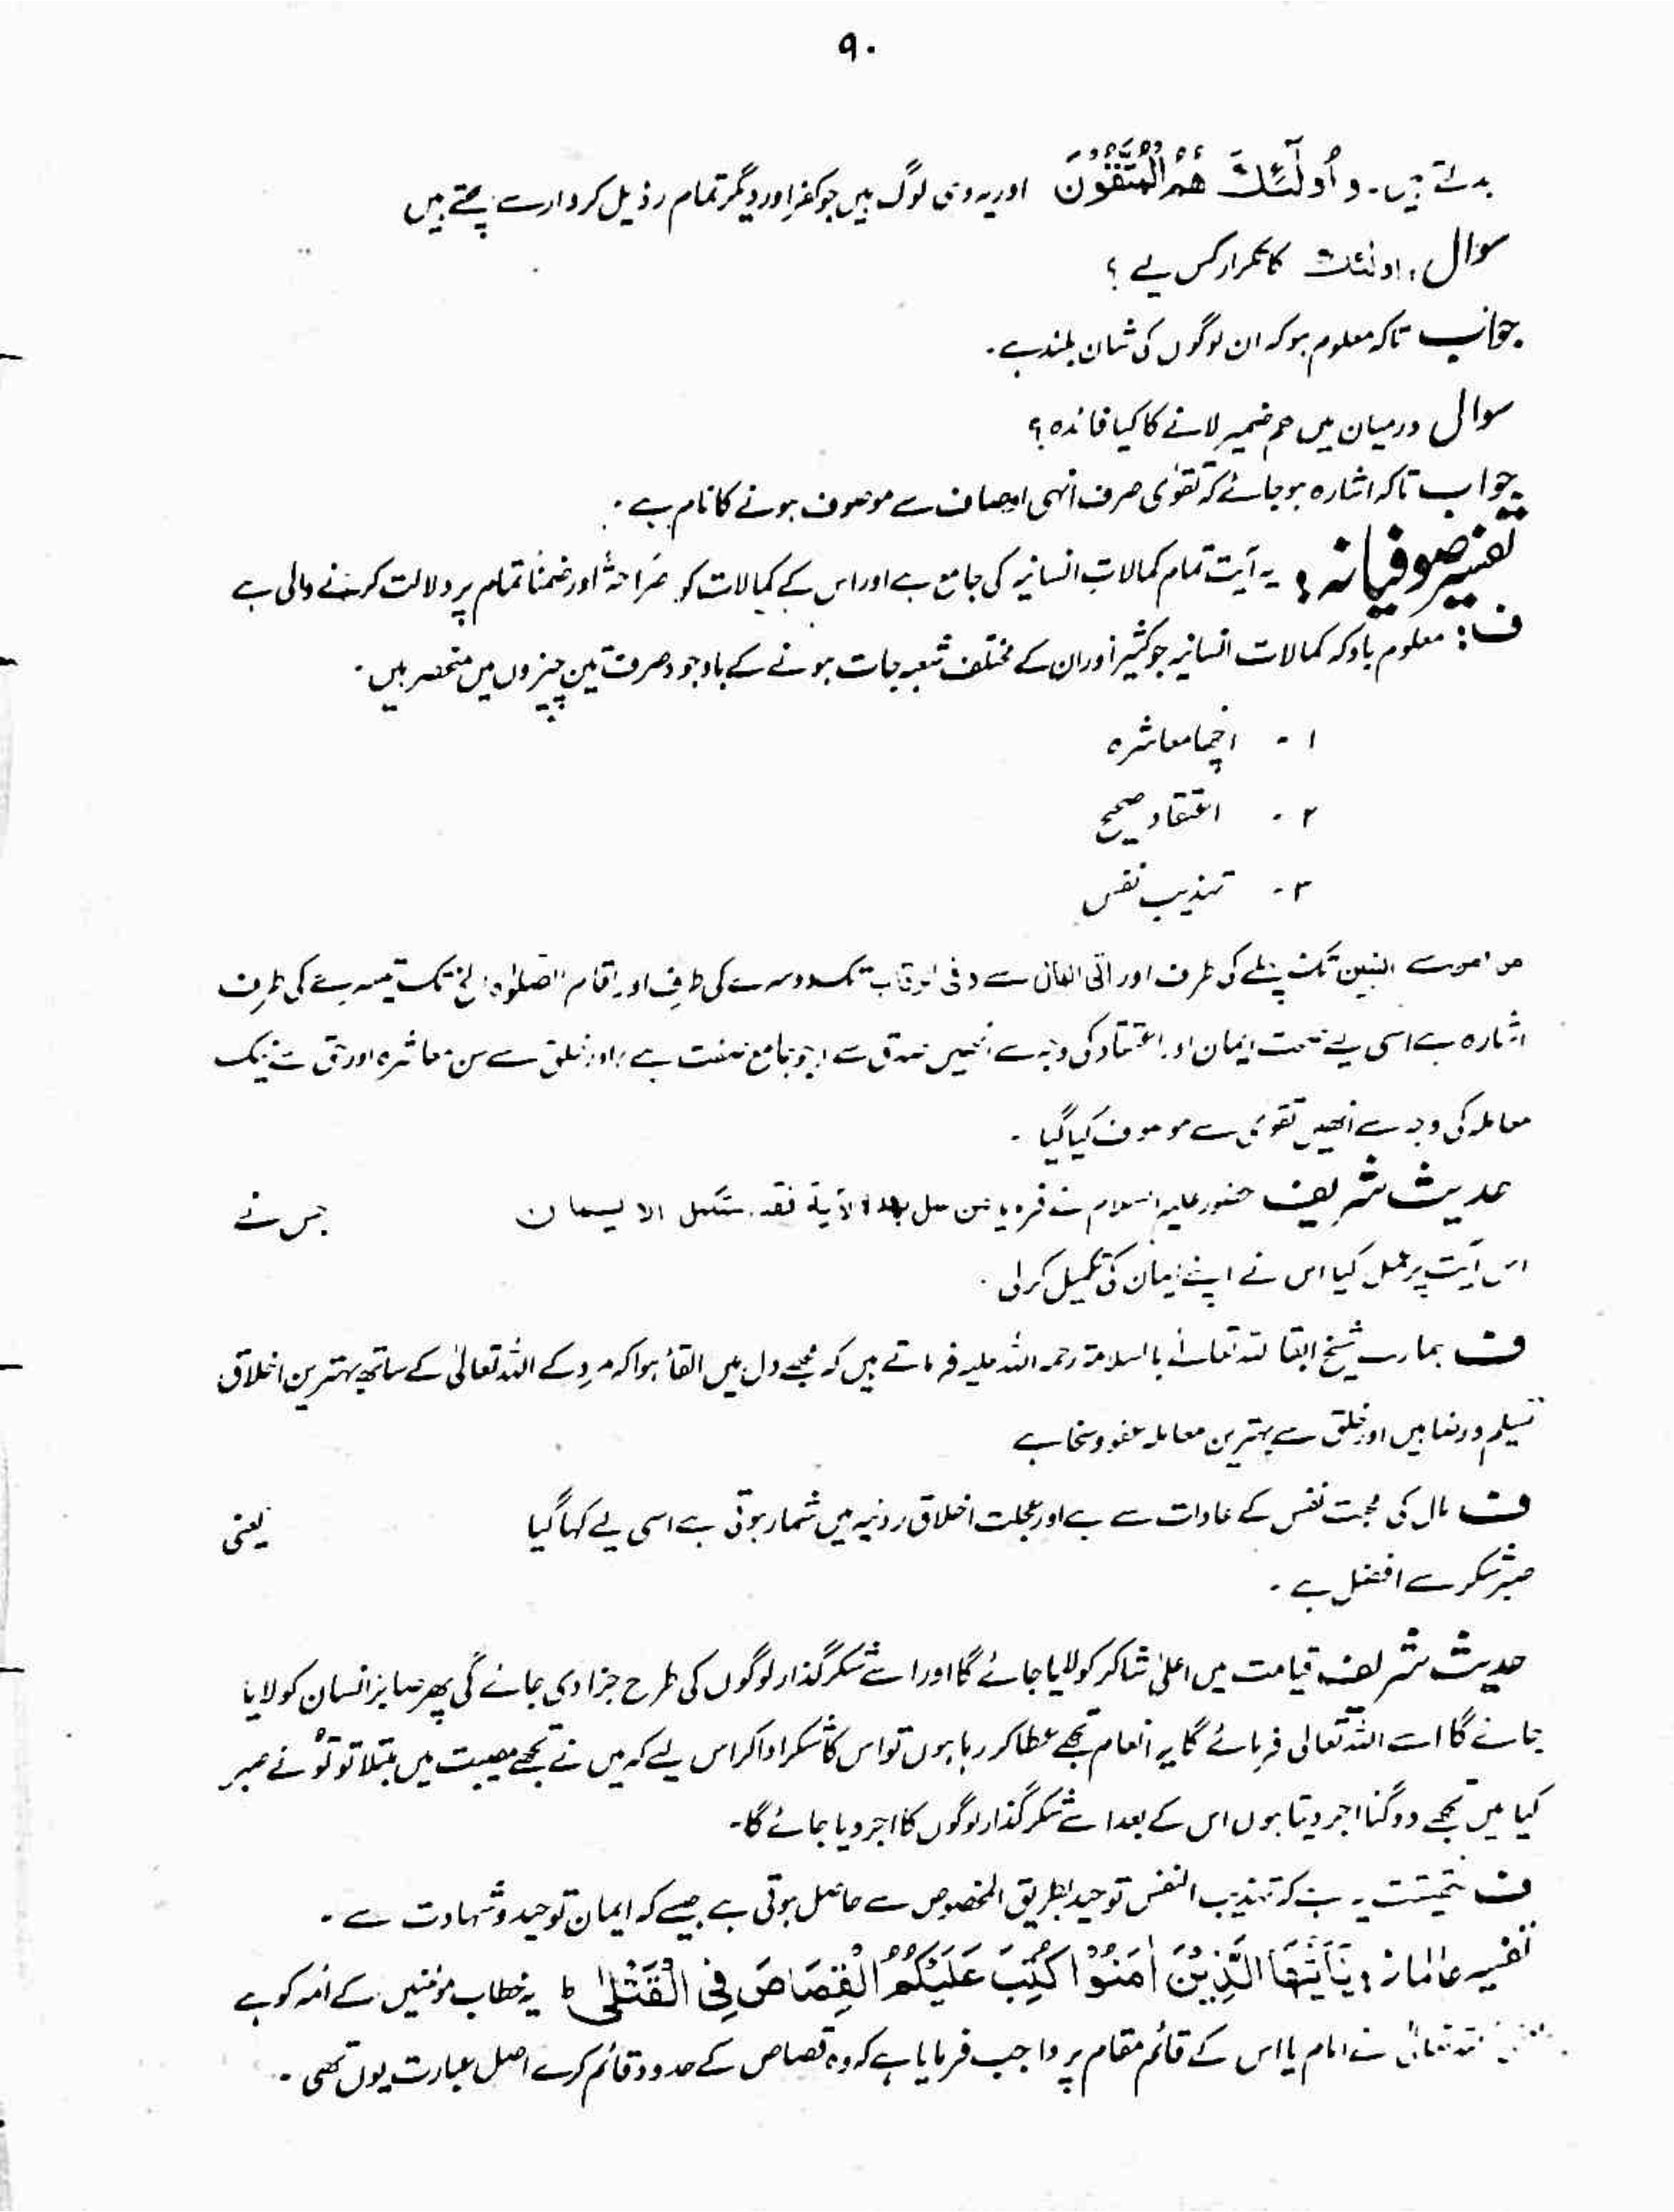 ۹۰
ہوتے ہیں۔ وَ اُولٰٓئِكَ هُمُ الْمُتَّقُوْنَ اور یہ وہی لوگ ہیں جو کفر اور دیگر تمام رذیل کردار سے بچتے ہیں
سوال: اولئك کا تکرار کس لیے ؟
جواب تاکہ معلوم ہو کہ ان لوگوں کی شان بلند ہے۔
سوال درمیان میں ھم ضمیر لانے کا کیا فائدہ ؟
جواب تاکہ اشارہ ہو جائے کہ تقویٰ صرف انہی اوصاف سے موصوف ہونے کا نام ہے۔
تفسیر صوفیانہ: یہ آیت تمام کمالاتِ انسانیہ کی جامع ہے اور اس کے کمالات کو صراحۃً اور ضمناً تمام پر دلالت کرنے والی ہے
ف: معلوم باد کہ کمالات انسانیہ جو کثیر اور ان کے مختلف شعبہ جات ہونے کے باوجود صرف تین چیزوں میں منحصر ہیں۔
۱ - اچھا معاشرہ
۲ - اعتقاد صحیح
۳ - تہذیب نفس
النبین تک پہلے کی طرف اور اٰتی المال سے و فی الرقاب تک دوسرے کی طرف اور اقام الصلوٰۃ الخ تک تیسرے کی طرف
اشارہ ہے اسی لیے صحت ایمان اور اعتقاد کی وجہ سے انھیں صدق سے (جو جامع صفت ہے) اور خلق سے حسن معاشرہ اور حق سے نیک
معاملہ کی وجہ سے انھیں تقویٰ سے موصوف کیا گیا۔
حدیث شریف حضور علیہ السلام نے فرمایا من عمل بهذه الآية فقد استكمل الايمان جس نے
اس آیت پر عمل کیا اس نے اپنے ایمان کی تکمیل کر لی۔
ف ہمارے شیخ ابقا اللہ تعالیٰ بالسلامۃ رحمہ اللہ علیہ فرماتے ہیں کہ مجھے دل میں القاء ہوا کہ مرد کے اللہ تعالیٰ کے ساتھ بہترین اخلاق
تسلیم و رضا ہیں اور خلق سے بہترین معاملہ عفو و سخا ہے
ف مال کی محبت نفس کے عادات سے ہے اور عجلت اخلاق ردنیہ میں شمار ہوتی ہے اسی لیے کہا گیا یعنی
صبر شکر سے افضل ہے۔
حدیث شریف قیامت میں اعلیٰ شاکر کو لایا جائے گا اور اسے شکر گذار لوگوں کی طرح جزا دی جائے گی پھر صابر انسان کو لایا
جائے گا اسے اللہ تعالی فرمائے گا یہ انعام تجھے عطا کر رہا ہوں تو اس کا شکر ادا کر اس لیے کہ میں نے تجھے مصیبت میں مبتلا تو تُو نے صبر
کیا میں تجھے دوگنا اجر دیتا ہوں اس کے بعد اسے شکر گذار لوگوں کا اجر دیا جائے گا۔
ف حقیقت یہ ہے کہ تہذیب النفس توحید بطریق المخصوص سے حاصل ہوتی ہے جیسے کہ ایمان توحید و شہادت سے۔
تفسیر عالمانہ: يٰٓاَيُّهَا الَّذِيْنَ اٰمَنُوْا كُتِبَ عَلَيْكُمُ الْقِصَاصَ فِي الْقَتْلٰى ط یہ خطاب مؤمنین کے ائمہ کو ہے
اللہ تعالیٰ نے امام یا اس کے قائم مقام پر واجب فرمایا ہے کہ وہ قصاص کے حدود قائم کرے اصل عبارت یوں تھی۔